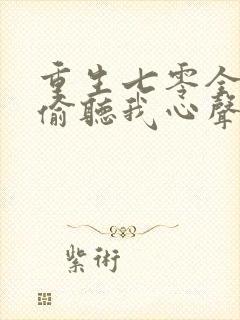 重生七零全
偷聽我心聲
紫術